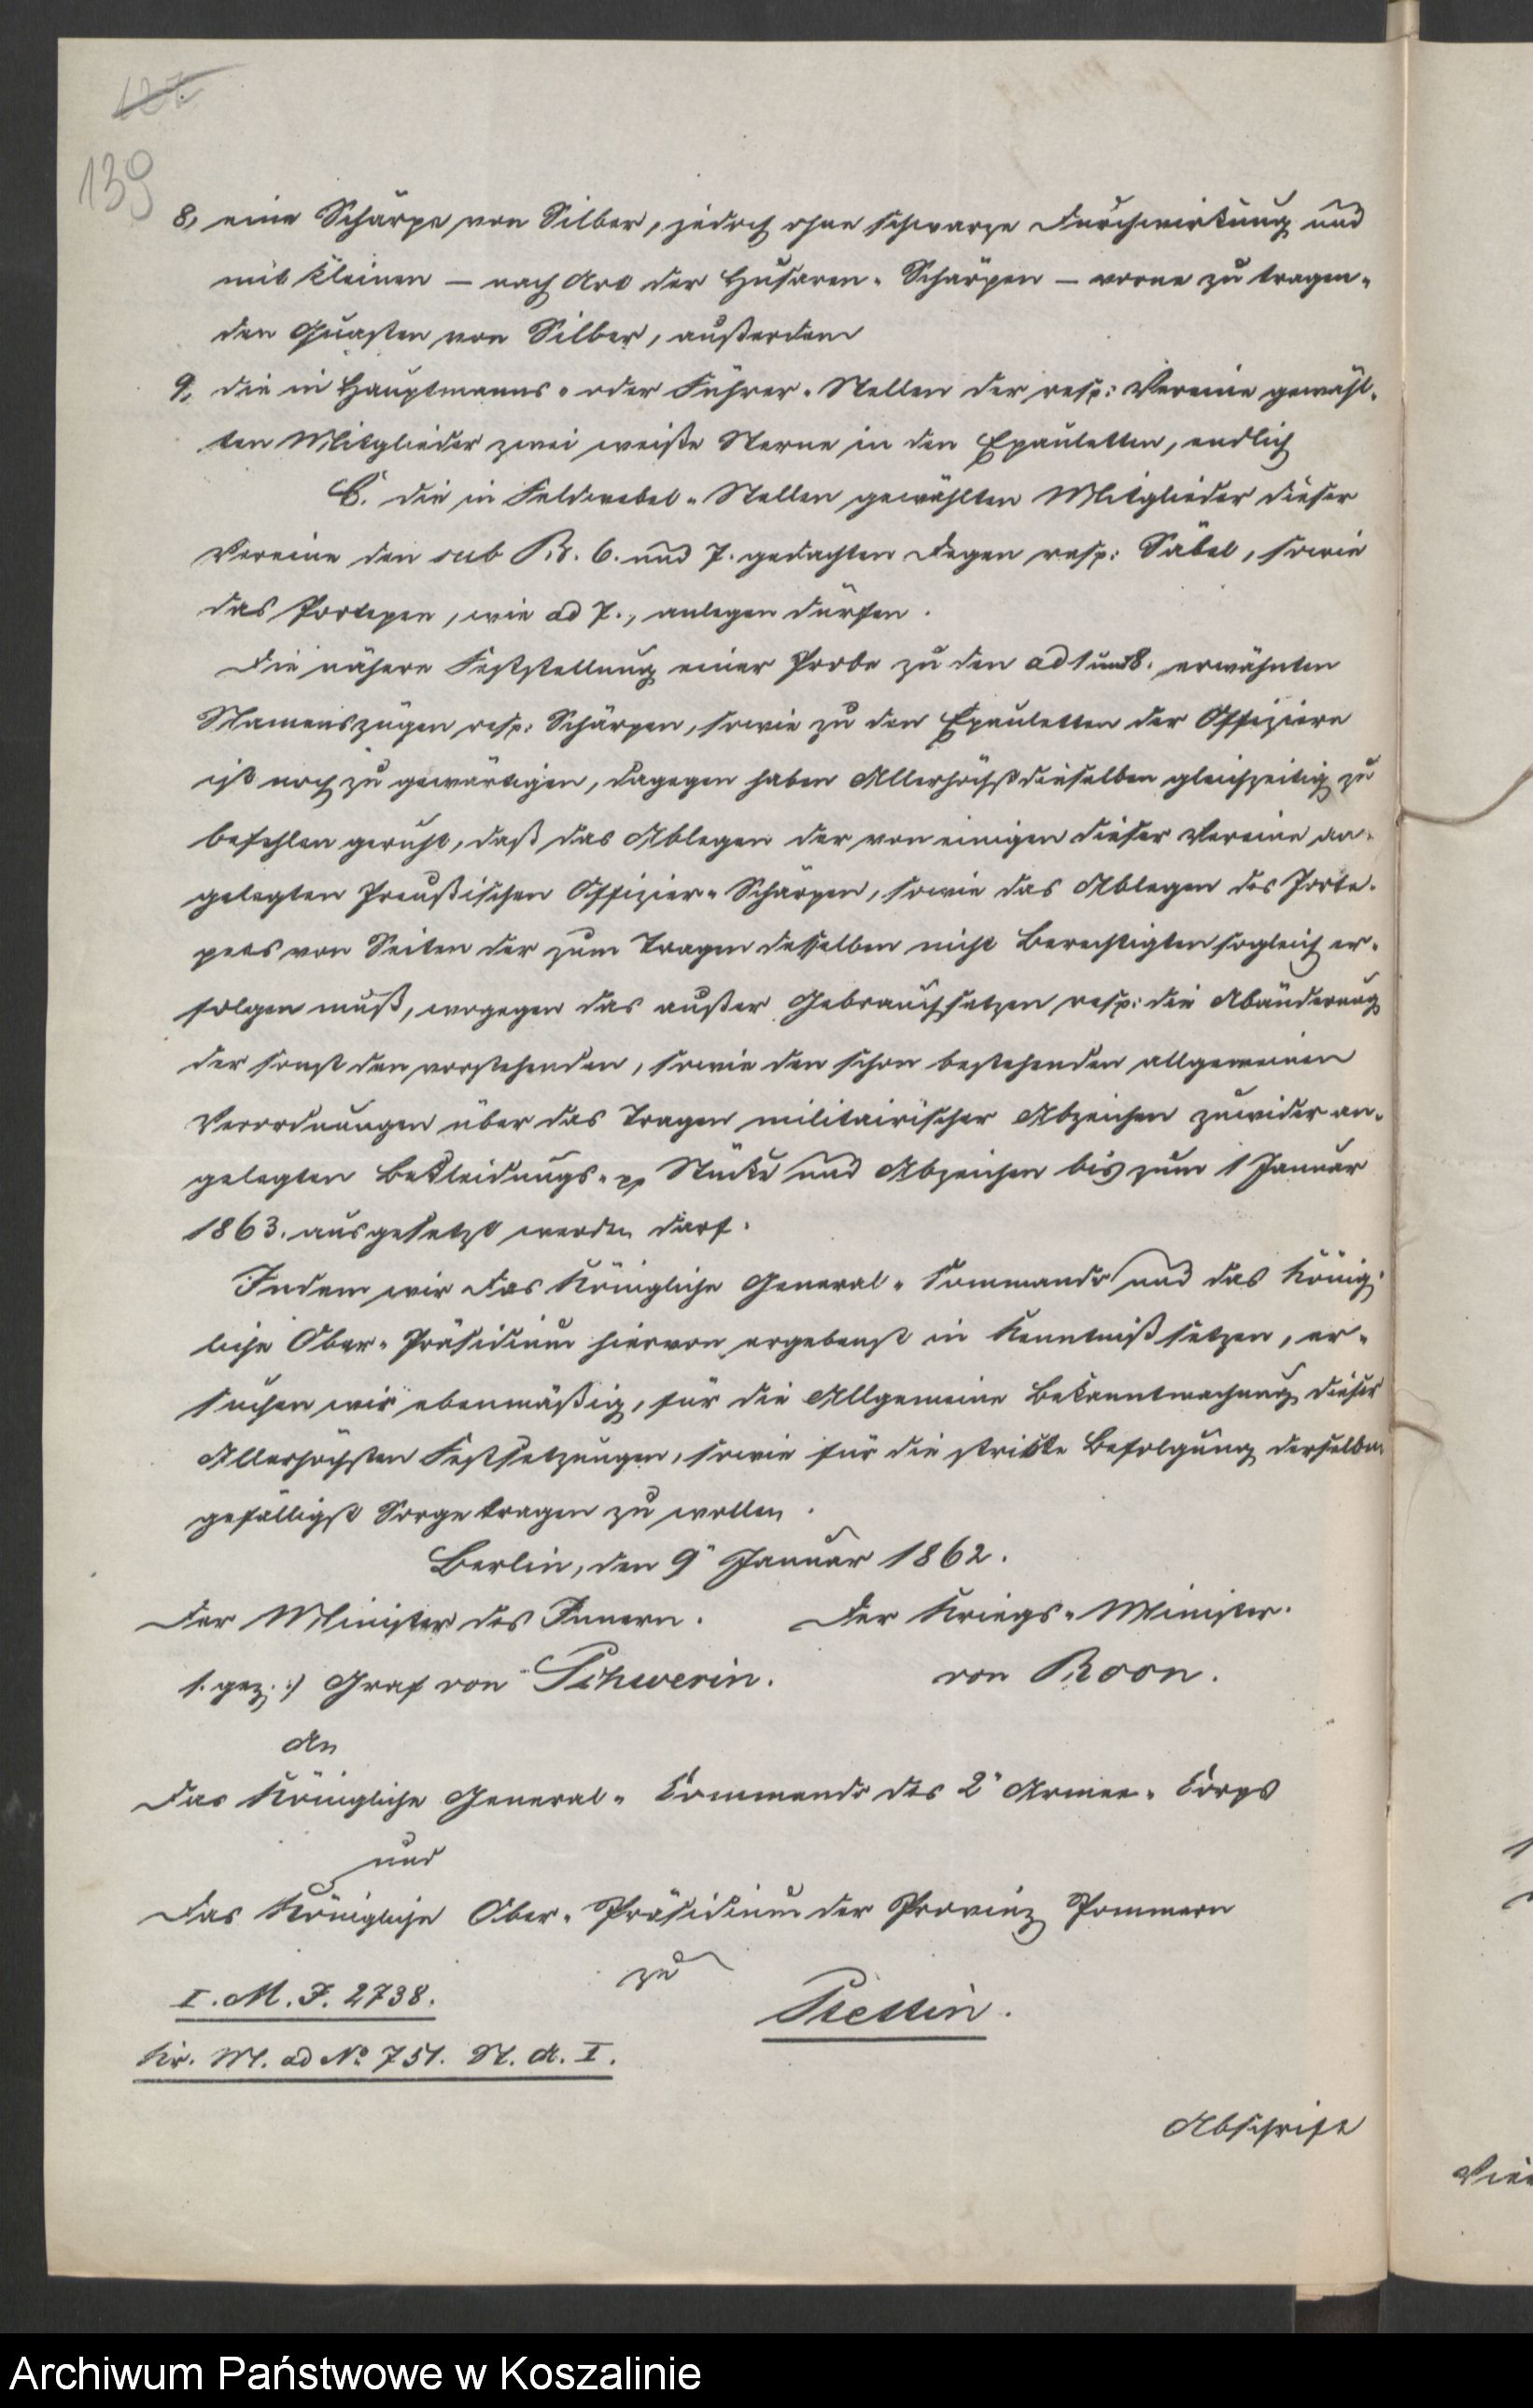 139
8, eine Schärpe von Silber, jedoch ohne schwarze Durchwirkung und
mit kleinen — nach Art der Husaren-Schärpen — vorne zu tragen-
den Quasten von Silber, außerdem
9, die in Hauptmanns- oder Führer-Stellen der resp: Vereine gewähl-
ten Mitglieder zwei weiße Sterne in den Epauletten, endlich
C. die in Feldwebel-Stellen gewählten Mitglieder dieser
Vereine den sub B. 6. und 7. gedachten Degen resp: Säbel, sowie
das Portepee, wie ad 7., anlegen dürfen.
Die nähere Feststellung einer Probe zu den ad 1 und 8. erwähnten
Namenszügen resp: Schärpen, sowie zu den Epauletten der Offiziere
ist noch zu gewärtigen, dagegen haben Allerhöchstdieselben gleichzeitig zu
befehlen geruht, daß das Ablegen der von einigen dieser Vereine an-
gelegten Preußischen Offizier-Schärpen, sowie das Ablegen des Porte-
pees von Seiten der zum Tragen desselben nicht Berechtigten sogleich er-
folgen muß, wogegen das außer Gebrauch setzen resp: die Abänderung
der sonst den vorstehenden, sowie den schon bestehenden allgemeinen
Verordnungen über das Tragen militairischer Abzeichen zuwider an-
gelegten Bekleidungs- pp Stücke und Abzeichen bis zum 1 Januar
1863. ausgesetzt werden darf.
Indem wir das Königliche General-Kommando und das König-
liche Ober-Präsidium hiervon ergebenst in Kenntniß setzen, er-
suchen wir ebenmäßig, für die Allgemeine Bekanntmachung dieser
Allerhöchsten Festsetzungen, sowie für die strikte Befolgung derselben
gefälligst Sorge tragen zu wollen.
Berlin, den 9" Januar 1862.
Der Minister des Innern. Der Kriegs-Minister.
(. gez. :) Graf von Schwerin. von Roon.
An
Das Königliche General-Commando des 2" Armee-Corps
und
Das Königliche Ober-Präsidium der Provinz Pommern
zu
Stettin.
I. M. J. 2738.
Kr. M. ad No 751. M. A. I.
Abschrift
Archiwum Państwowe w Koszalinie